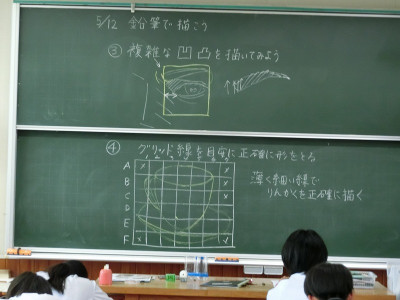 5/12 鉛筆で描こう
③ 複雑な 凹 凸 を描いてみよう
④ グリッド線を目安に正確に形をとる
薄く細い線で
りんかくを正確に描く
A
B
C
D
E
F